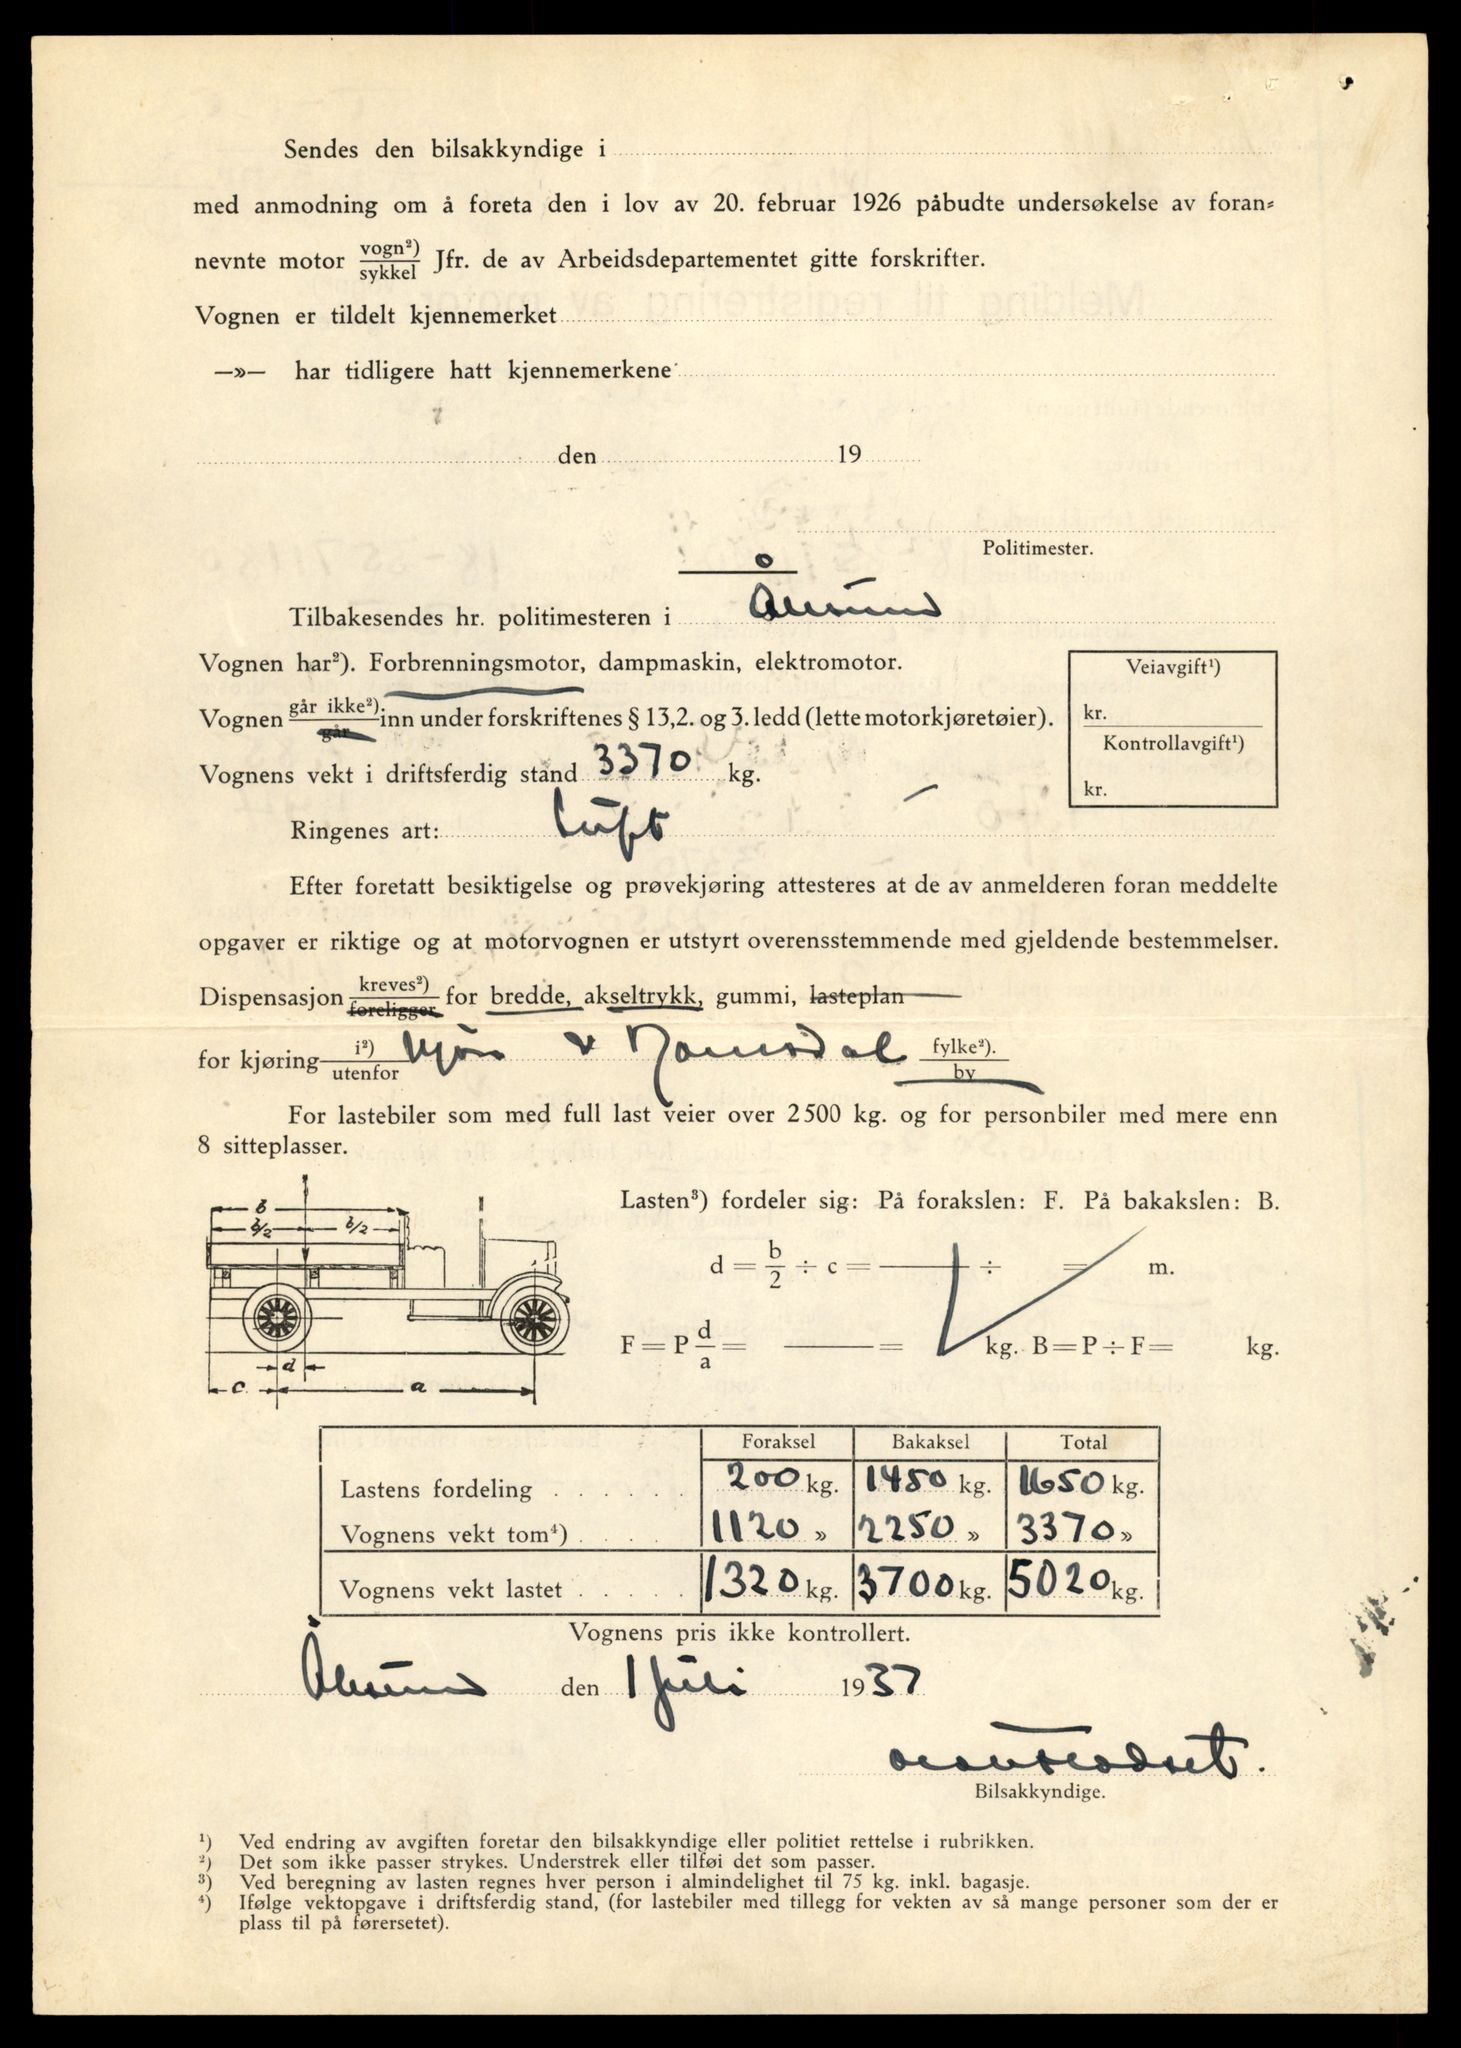 Sendes den bilsakkyndige i
med anmodning om å foreta den i lov av 20. februar 1926 påbudte undersøkelse av foran=
nevnte motor vogn²)/sykkel Jfr. de av Arbeidsdepartementet gitte forskrifter.
Vognen er tildelt kjennemerket
—»— har tidligere hatt kjennemerkene
den 19
Politimester.
Tilbakesendes hr. politimesteren i Ålesund
Vognen har²). Forbrenningsmotor, dampmaskin, elektromotor.
Veiavgift¹)
kr.
Kontrollavgift¹)
kr.
Vognen går ikke²)/går inn under forskriftenes § 13,2. og 3. ledd (lette motorkjøretøier).
Vognens vekt i driftsferdig stand 3370 kg.
Ringenes art: Luft
Efter foretatt besiktigelse og prøvekjøring attesteres at de av anmelderen foran meddelte
opgaver er riktige og at motorvognen er utstyrt overensstemmende med gjeldende bestemmelser.
Dispensasjon kreves²)/foreligger for bredde, akseltrykk, gummi, lasteplan
for kjøring i²)/utenfor Møre & Romsdal fylke²)./by
For lastebiler som med full last veier over 2500 kg. og for personbiler med mere enn
8 sitteplasser.
b
b/2 b/2
d
c a
Lasten³) fordeler sig: På forakslen: F. På bakakslen: B.
d = b/2 ÷ c = ——— ÷ = m.
F = P d/a = ——— = kg. B = P ÷ F = kg.
Foraksel Bakaksel Total
Lastens fordeling . . . . . . 200 kg. 1450 kg. 1650 kg.
Vognens vekt tom⁴) . . . . 1120 » 2250 » 3370 »
Vognens vekt lastet . . . . . 1320 kg. 3700 kg. 5020 kg.
Vognens pris ikke kontrollert.
Ålesund den 1 juli 1937
Bilsakkyndige.
¹) Ved endring av avgiften foretar den bilsakkyndige eller politiet rettelse i rubrikken.
²) Det som ikke passer strykes. Understrek eller tilføi det som passer.
³) Ved beregning av lasten regnes hver person i almindelighet til 75 kg. inkl. bagasje.
⁴) Ifølge vektopgave i driftsferdig stand, (for lastebiler med tillegg for vekten av så mange personer som der er
plass til på førersetet).